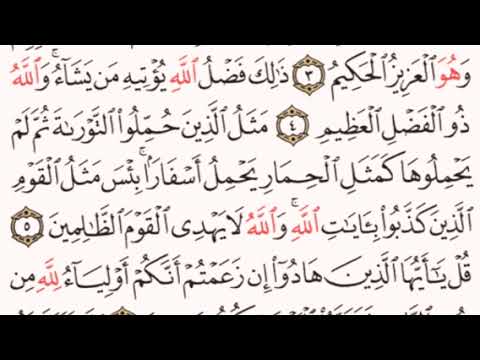 وَهُوَ ٱلْعَزِيزُ ٱلْحَكِيمُ ٣ ذَٰلِكَ فَضْلُ ٱللَّهِ يُؤْتِيهِ مَن يَشَآءُ ۚ وَٱللَّهُ
ذُو ٱلْفَضْلِ ٱلْعَظِيمِ ٤ مَثَلُ ٱلَّذِينَ حُمِّلُوا۟ ٱلتَّوْرَىٰةَ ثُمَّ لَمْ
يَحْمِلُوهَا كَمَثَلِ ٱلْحِمَارِ يَحْمِلُ أَسْفَارًۢا ۚ بِئْسَ مَثَلُ ٱلْقَوْمِ
ٱلَّذِينَ كَذَّبُوا۟ بِـَٔايَـٰتِ ٱللَّهِ ۚ وَٱللَّهُ لَا يَهْدِى ٱلْقَوْمَ ٱلظَّـٰلِمِينَ ٥
قُلْ يَـٰٓأَيُّهَا ٱلَّذِينَ هَادُوٓا۟ إِن زَعَمْتُمْ أَنَّكُمْ أَوْلِيَآءُ لِلَّهِ مِن